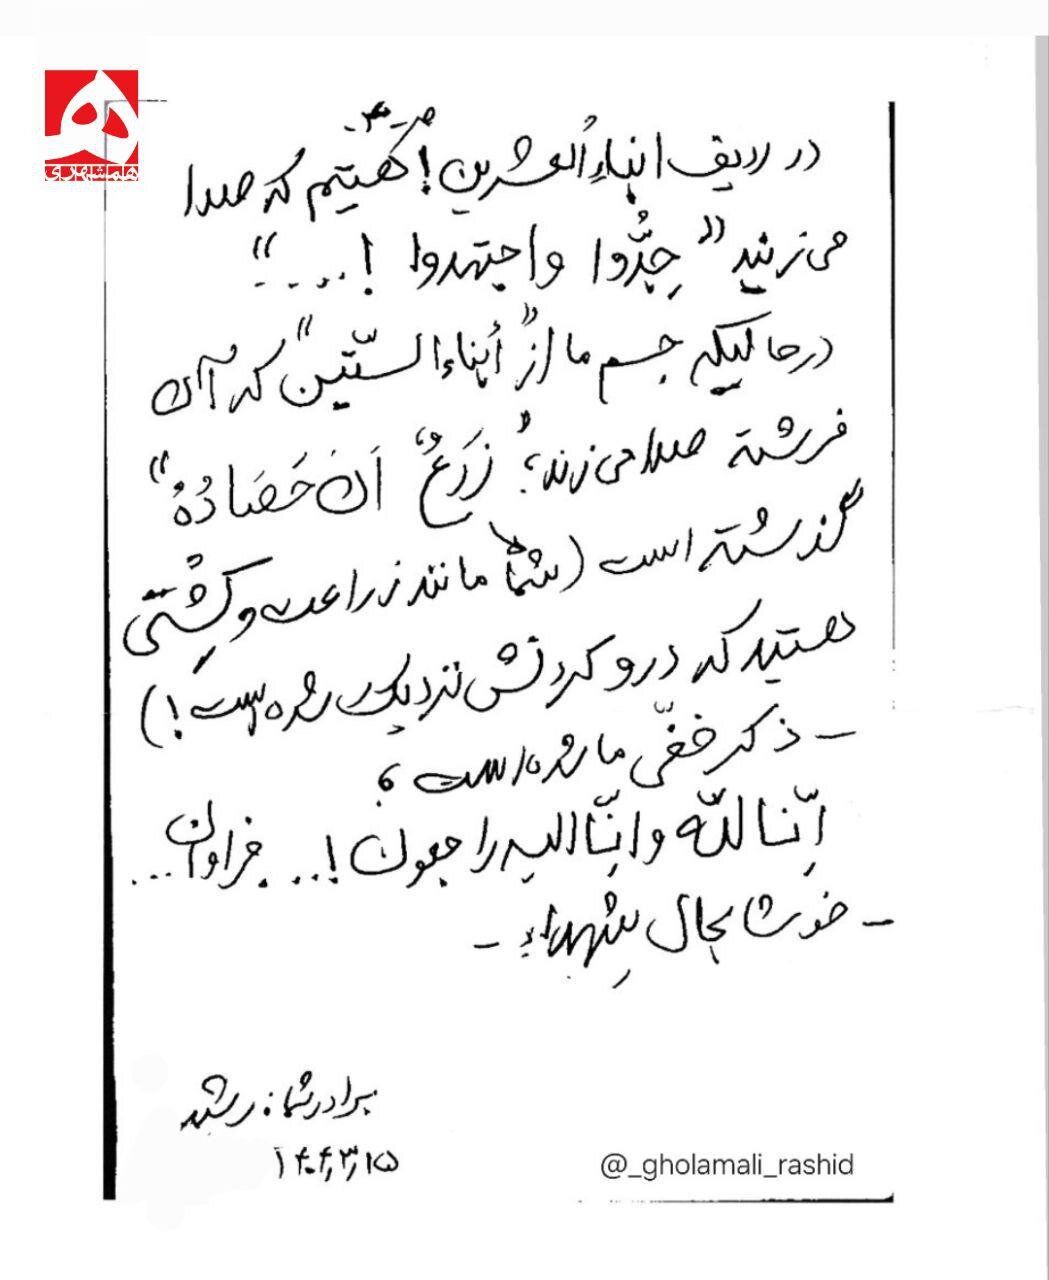 همشهری
-۳-
در ردیف ابناءُ العشرین! هستیم که صدا
می‌زنند "جِدُّوا واجتهدوا !...."
درحالیکه جسم ما از "أبناء السّتّین" که آن
فرشته صدا می‌زند؛ "زَرعٌ آنَ حَصَادُهُ"
گذشته است (شما مانند زراعت و کِشْتی
هستید که درو کردنش نزدیک شده است!)
- ذکر خفیّ ما شده است؛
اِنّا لله وانّا الیه راجعون!... فراوان...
- خوشا بحال شهداء -
برادر شما: رشید
۱۴۰۴,۳,۱۵
@_gholamali_rashid